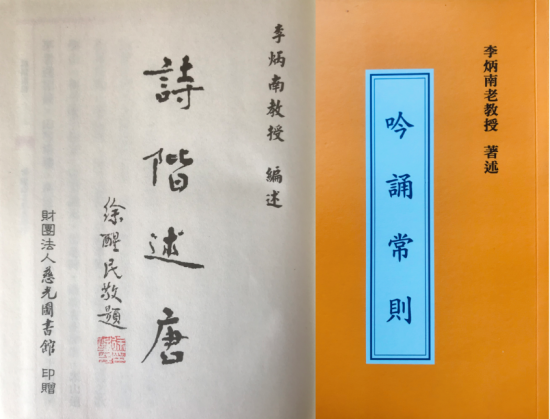 李炳南教授 編述
詩階述唐
徐醒民敬題
財團法人慈光圖書館 印贈
李炳南老教授 著述
吟誦常則